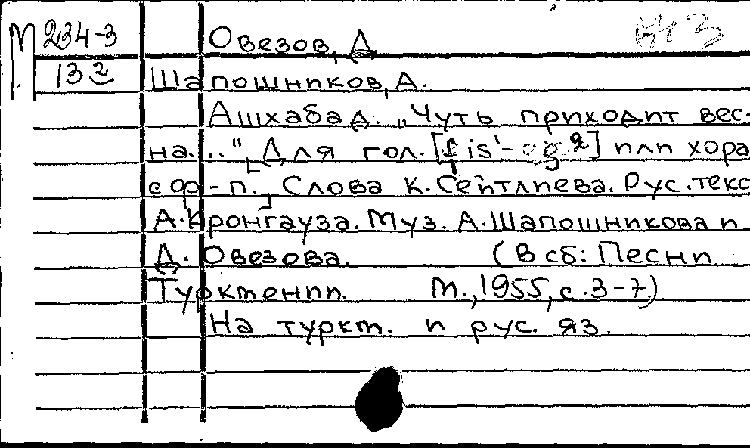 М 234-3
133
Овезов, Д.
Шапошников, А.
Ашхабад. "Чуть приходит вес-
на..." Для гол. [fis¹- g²] или хора
с ф-п. Слова К. Сейтлиева. Рус. текс
А. Кронгауза. Муз. А. Шапошникова и
Д. Овезова. (В сб: Песни
Туркмении. М., 1955, с. 3-7)
На туркм. и рус. яз.